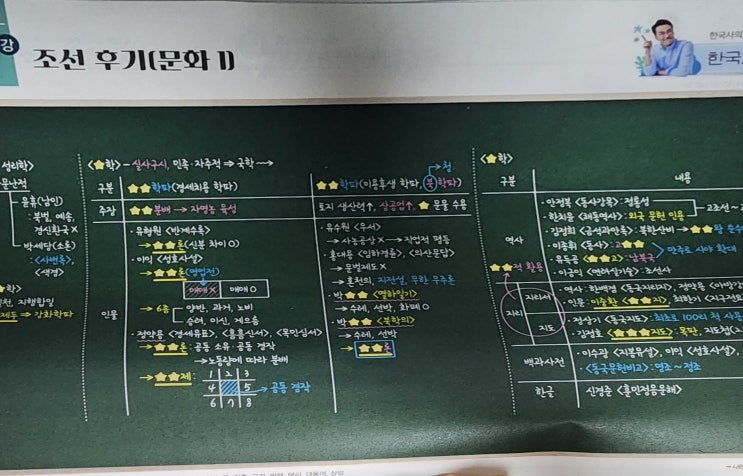 강
조선 후기(문화 I)
한국사의
한국
성리학>
윤휴(남인)
: 북벌, 예송,
경신환국 X
박세당(소론)
: <사변록>,
<색경>
학>
지행합일
⇒ 강화학파
<★학> - 실사구시, 민족·자주적 ⇒ 국학 →
구분
★★학파(경세치용 학파)
청
★★학파(이용후생 학파, 북학파)
주장
★★분배 → 자영농 육성
토지 생산력↑, 상공업↑, ★ 문물 수용
인물
· 유형원 <반계수록>
→ ★★론(신분 차이 O)
· 이익 <성호사설>
→ ★★론(영업전)
매매 X 매매 O
→ 6좀 양반, 과거, 노비
승려, 사치, 게으름
· 정약용 <경세유표>, <흠흠신서>, <목민심서>
→ ★★론 : 공동 소유·공동 경작
→ 노동량에 따라 분배
→ ★★제 :
1 2 3
4 5 공동 경작
6 7 8
· 유수원 <우서>
→ 사농공상 X → 직업적 평등
· 홍대용 <임하경륜>, <의산문답>
→ 문벌제도 X
→ 혼천의, 지전설, 무한 우주론
· 박★★ <열하일기>
→ 수레, 선박, 화폐 O
· 박★★ <북학의>
→ 수레, 선박
→ ★★론
<★학>
구분
내용
역사
· 안정복 <동사강목> : 정통성
고조선 ~
· 한치윤 <해동역사> : 외국 문헌 인용
· 김정희 <금석과안록> : 북한산비 → ★★왕 순수
· 이종휘 <동사> : 고★★
만주로 시야 확대
· 유득공 <★★고> : 남북국
· 이긍익 <연려실기술> : 조선사
★★적 활용
지리
지리서
지도
· 역사 : 한백겸 <동국지리지>, 정약용 <아방강
· 인문 : 이중환 <★★지>, 최한기 <지구전요
· 정상기 <동국지도> : 최초로 100리 척 사용
· 김정호 <★★★★지도> : 목판, 지도첩
백과사전
· 이수광 <지봉유설>, 이익 <성호사설>,
· <동국문헌비고> : 영조 ~ 정조
한글
신경준 <훈민정음운해>